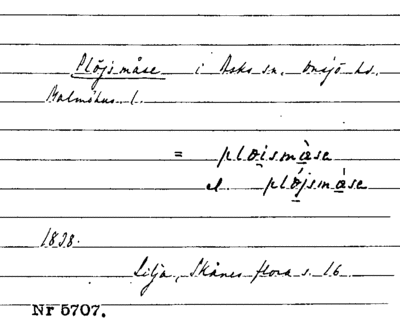 Plöjsmåse i Asks sn. Onsjö hd.
Malmöhus l.
= ploismåse
el. plöjsmåse
1838.
Lilja, Skånes flora s. 16
Nr 5707.